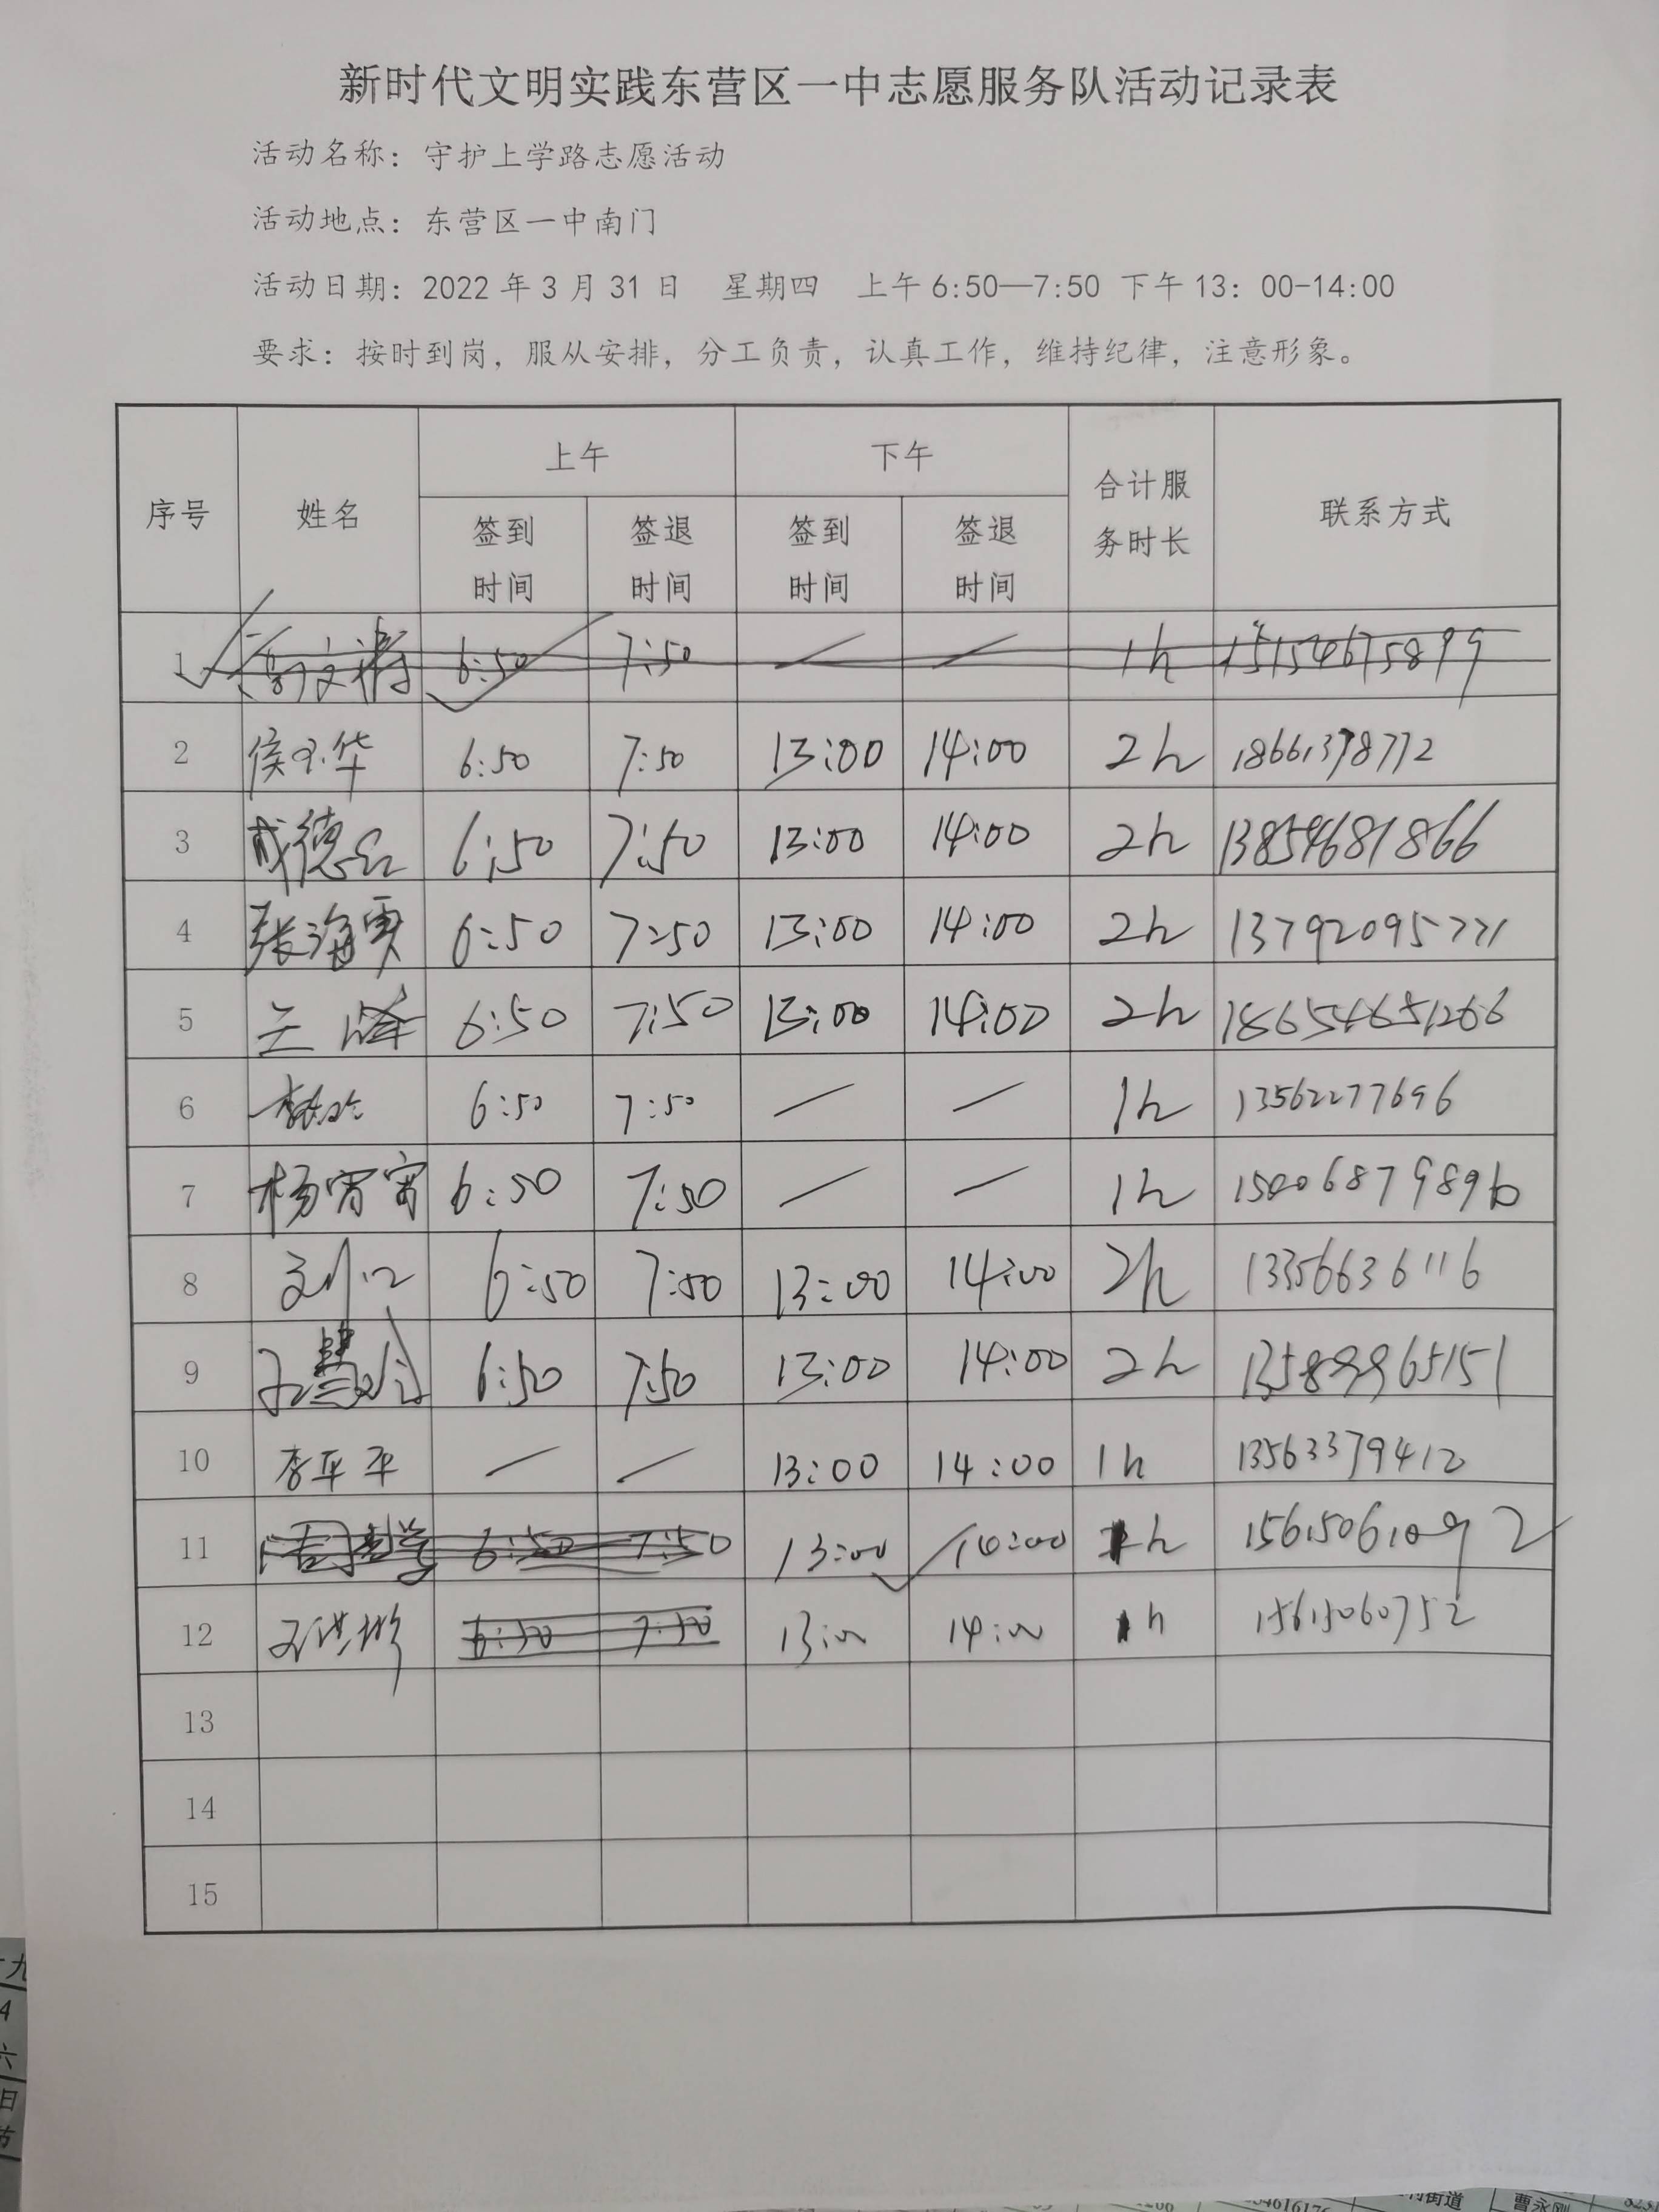 新时代文明实践东营区一中志愿服务队活动记录表
活动名称：守护上学路志愿活动
活动地点：东营区一中南门
活动日期：2022年3月31日 星期四 上午6:50—7:50 下午13：00-14:00
要求：按时到岗，服从安排，分工负责，认真工作，维持纪律，注意形象。
序号 姓名 上午 下午 合计服务时长 联系方式
签到时间 签退时间 签到时间 签退时间
1 6:50 7:50 — — 1h
2 6:50 7:50 13:00 14:00 2h
3 6:50 7:50 13:00 14:00 2h 13854681866
4 6:50 7:50 13:00 14:00 2h 13792095771
5 6:50 7:50 13:00 14:00 2h
6 6:50 7:50 — — 1h 13562277696
7 杨霄霄 6:50 7:50 — — 1h
8 6:50 7:50 13:00 14:00 2h 13356636116
9 6:50 7:50 13:00 14:00 2h 13589965151
10 李平平 — — 13:00 14:00 1h 13563379412
11 6:50 7:50 13:00 14:00 1h 15615061092
12 6:50 7:50 13:00 14:00 1h 15615060752
13
14
15
九
4
六
日
节
街道 曹永刚